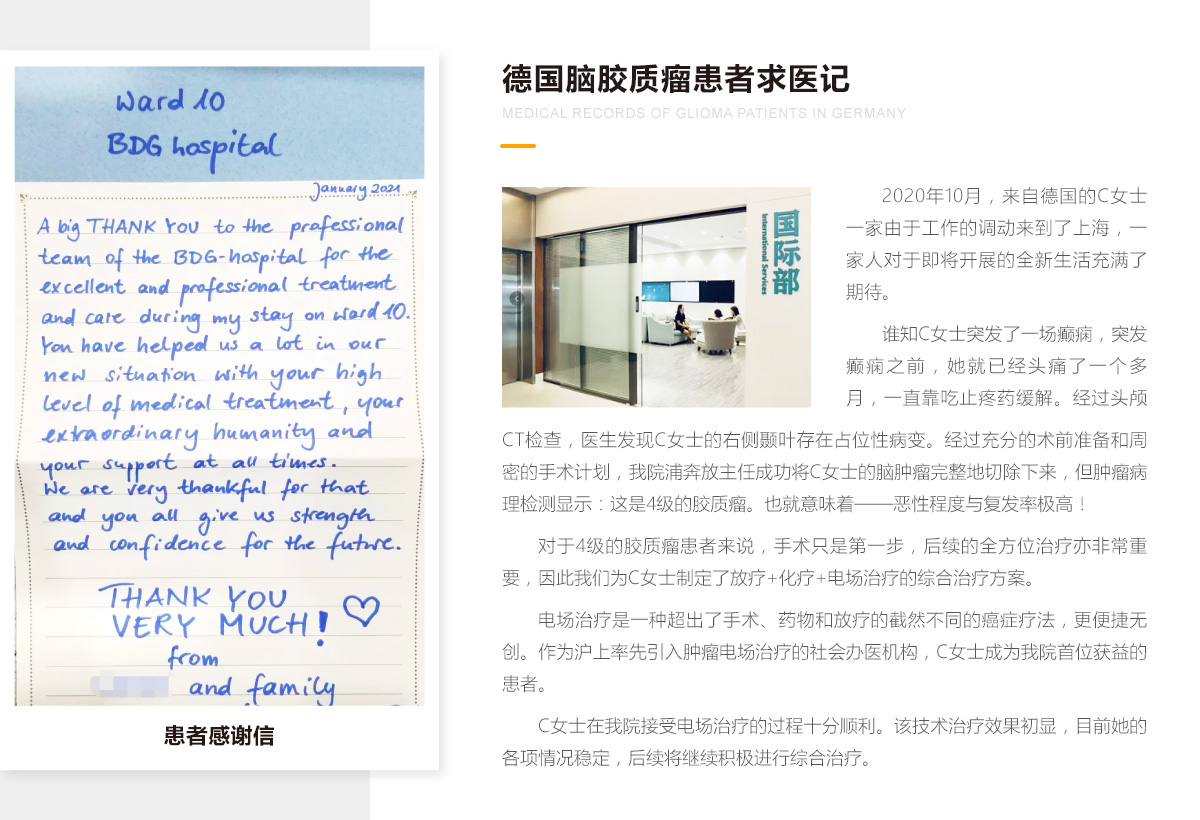 Ward 10
BDG hospital
January 2021
A big THANK YOU to the professional
team of the BDG-hospital for the
excellent and professional treatment
and care during my stay on Ward 10.
You have helped us a lot in our
new situation with your high
level of medical treatment, your
extraordinary humanity and
your support at all times.
We are very thankful for that
and you all give us strength
and confidence for the future.
THANK YOU
VERY MUCH!
from
and family
患者感谢信
德国脑胶质瘤患者求医记
MEDICAL RECORDS OF GLIOMA PATIENTS IN GERMANY
国际部
International Services
2020年10月，来自德国的C女士
一家由于工作的调动来到了上海，一
家人对于即将开展的全新生活充满了
期待。
谁知C女士突发了一场癫痫，突发
癫痫之前，她就已经头痛了一个多
月，一直靠吃止疼药缓解。经过头颅
CT检查，医生发现C女士的右侧颞叶存在占位性病变。经过充分的术前准备和周
密的手术计划，我院浦奔放主任成功将C女士的脑肿瘤完整地切除下来，但肿瘤病
理检测显示：这是4级的胶质瘤。也就意味着——恶性程度与复发率极高！
对于4级的胶质瘤患者来说，手术只是第一步，后续的全方位治疗亦非常重
要，因此我们为C女士制定了放疗+化疗+电场治疗的综合治疗方案。
电场治疗是一种超出了手术、药物和放疗的截然不同的癌症疗法，更便捷无
创。作为沪上率先引入肿瘤电场治疗的社会办医机构，C女士成为我院首位获益的
患者。
C女士在我院接受电场治疗的过程十分顺利。该技术治疗效果初显，目前她的
各项情况稳定，后续将继续积极进行综合治疗。